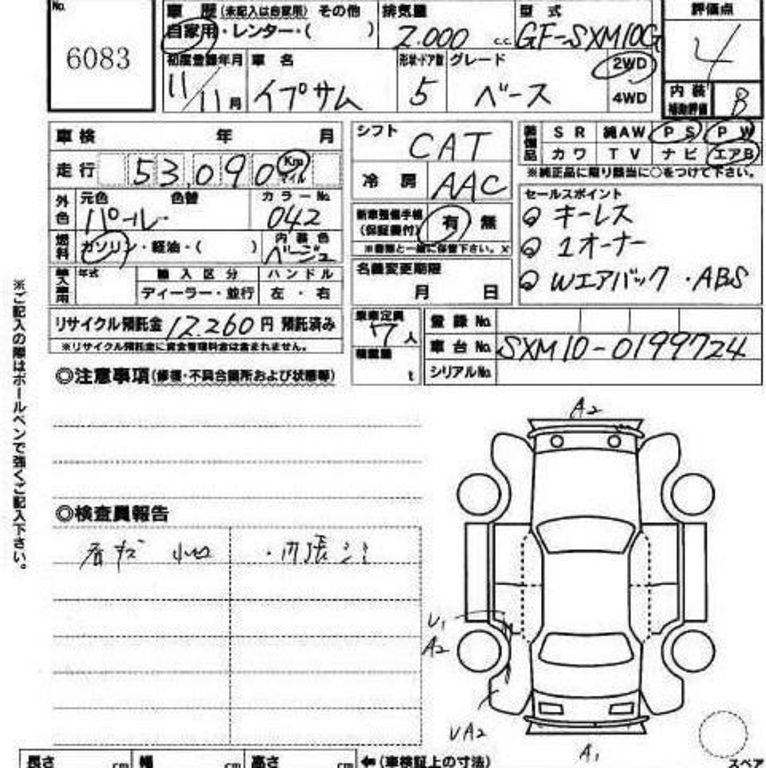 No. 6083
車歴 (未記入は自家用) その他
自家用・レンター・( )
排気量 2.000 c.c.
型式 GF-SXM10G
評価点 4
初度登録年月 11/11月
車名 イプサム
形状・ドア数 5
グレード ベース
2WD
4WD
内装補助評価 B
車検 年 月
走行 53,090 Km マイル
シフト CAT
冷房 AAC
装備品 SR 純AW PS PW
カワ TV ナビ エアB
※純正品に限り該当に○をつけて下さい。
外色 元色 パール 色替 カラーNo. 042
燃料 ガソリン・軽油・( ) 内装色 ベージュ
新車整備手帳(保証書付) 有 無
※書類と一緒に保管下さい。×
セールスポイント
キーレス
1オーナー
Wエアバック・ABS
輸入車用 年式 輸入区分 ハンドル
ディーラー・並行 左・右
名義変更期限
月 日
リサイクル預託金 12.260円 預託済み
※リサイクル預託金に資金管理料金は含まれません。
乗車定員 7人
積載量 t
登録No.
車台No. SXM10-0199724
シリアルNo.
◎注意事項(修復・不具合箇所および状態等)
※ご記入の際はボールペンで強くご記入下さい。
A2
◎検査員報告
U1
A2
UA2
A1
スペア
長さ cm 幅 cm 高さ cm ←(車検証上の寸法)